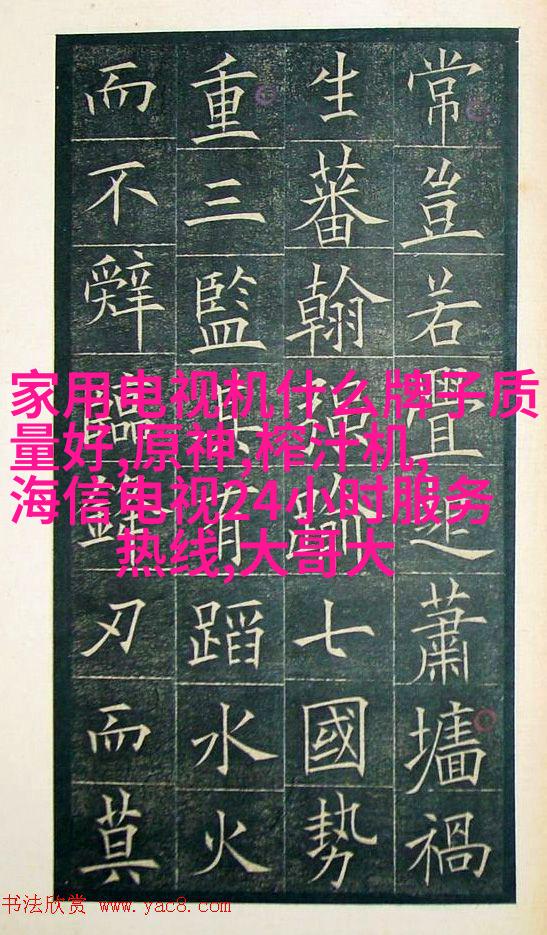 常豈若蕭墻禍
生蕃翰強七國勢
重三監蹈水火
而不辤臨刃而莫
家用电视机什么牌子质
量好,原神,榨汁机,
海信电视24小时服务
热线,大哥大
书法欣赏 www.yac8.com